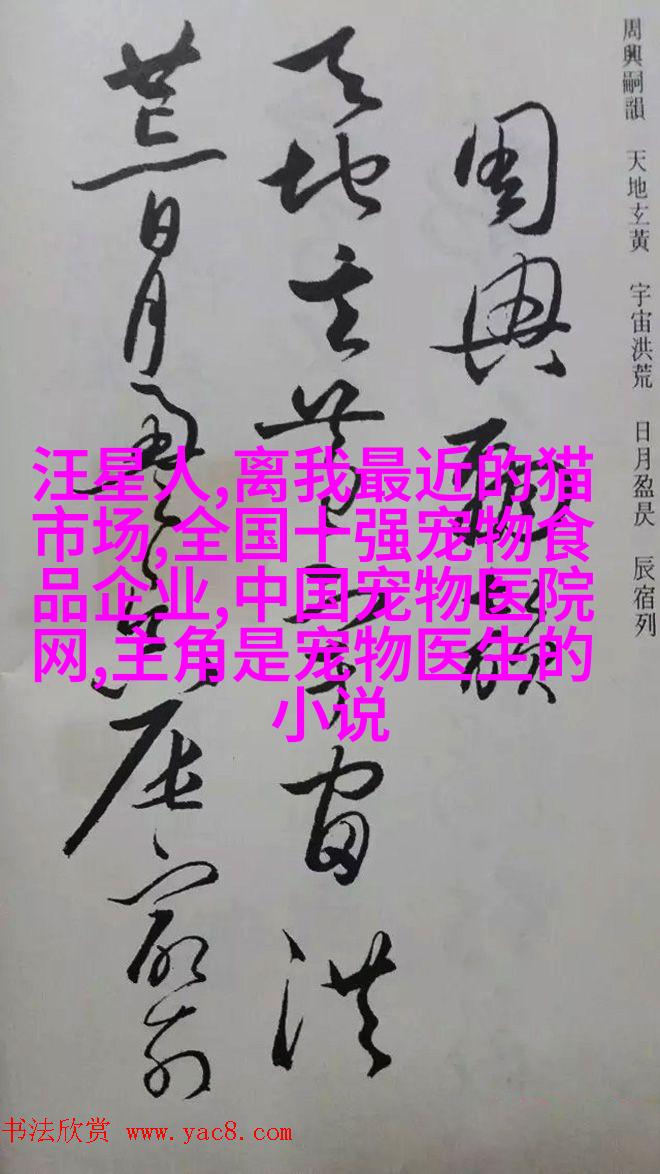 周興嗣韻 天地玄黃 宇宙洪荒 日月盈昃 辰宿列
周興嗣韻
天地玄黃宇宙洪
荒日月盈昃辰宿列
汪星人,离我最近的猫
市场,全国十强宠物食
品企业,中国宠物医院
网,主角是宠物医生的
小说
书法欣赏 www.yac8.com